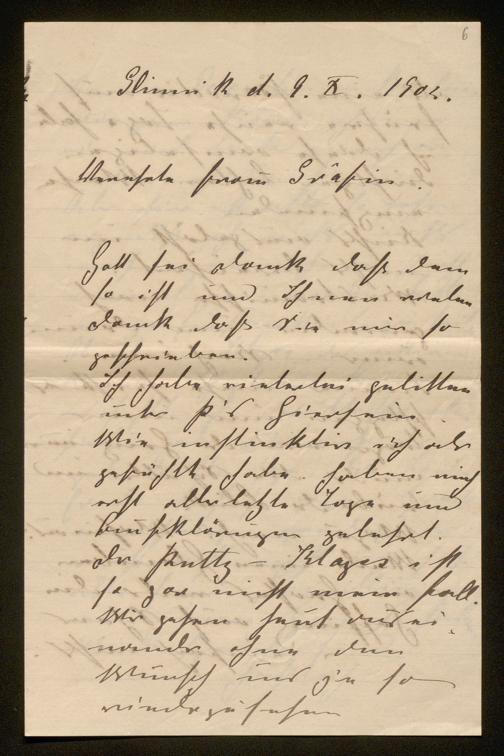 6
Glinnik d. 9. X. 1902.
Verehrte Frau Gräfin
Gott sei dank daß dem
so ist und Ihnen vielen
dank daß Sie mir so
geschrieben.
Ich habe vielerlei gelitten
unter P's Hiersein.
Wie instinktiv ich es
gefühlt habe haben mich
erst allerletzte Tage und
Aufklärungen gelehrt.
Dr - Klages ist
so gar nicht mein Fall.
Wir gehen heut ausei-
nander ohne den
Wunsch uns je so
wiederzusehen